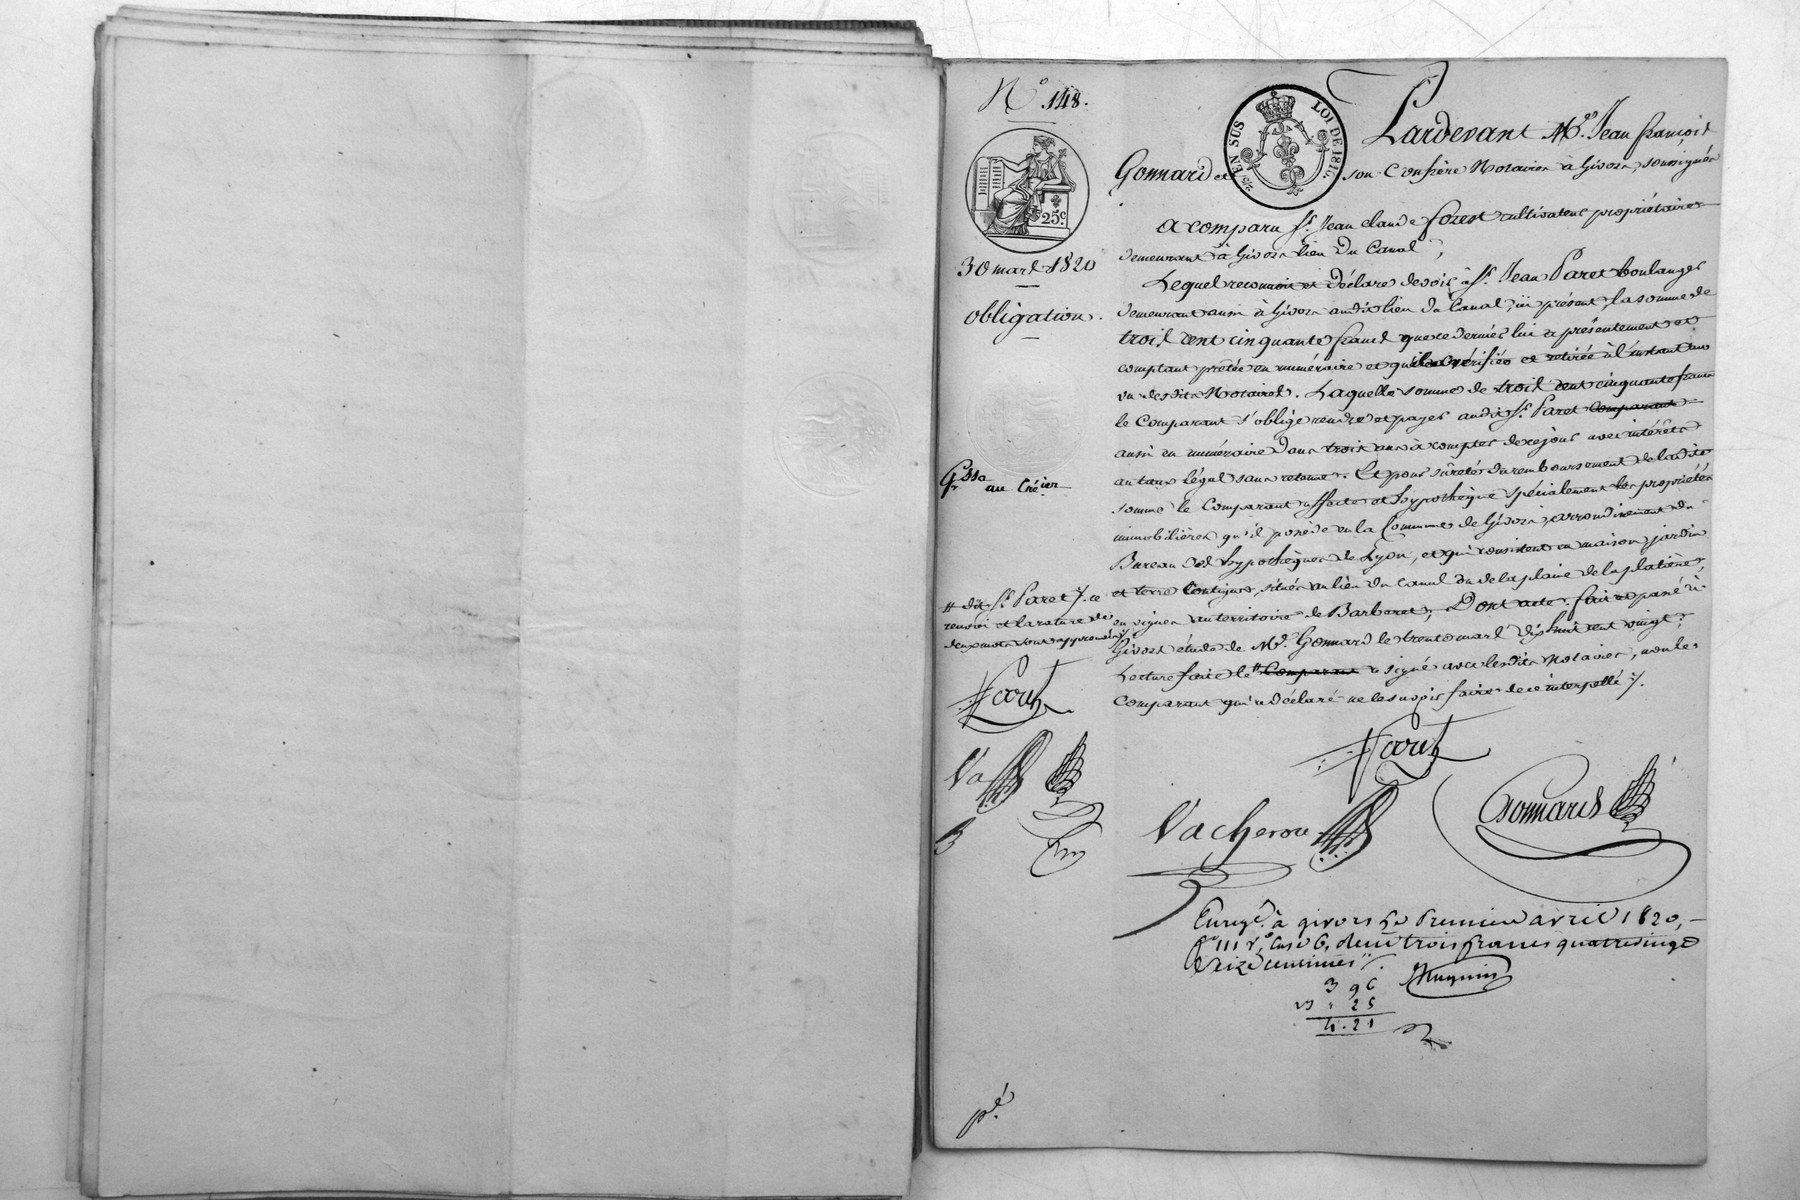 N° 148.
25 EN SUS LOI DE 1816
25c
30 mars 1820
obligation.
Gsse au Créier
Pardevant Me Jean françois
Gonnard et son Confrère Notaires à Givors, soussignés
a comparu Sr. Jean claude forest cultivateur propriétaire
demeurant à Givors lieu du Canal,
Lequel reconnoit et déclare devoir à Sr. Jean Paret boulanger
demeurant aussi à Givors audit lieu du Canal, ici présent, la somme de
trois cent cinquante francs que ce dernier lui a présentement et
comptant prêtée en numéraire et qu'il a vérifiée et retirée à l'instant au
vu desdits Notaires. Laquelle somme de trois cent cinquante francs
le Comparant s'oblige rendre et payer audit Sr. Paret Comparant
aussi en numéraire dans trois ans à compter de ce jour avec intérêts
au taux légal sans retenue. Et pour sûreté du remboursement de ladite
somme le Comparant affecte et hypothèque spécialement les propriétés
immobilières qu'il possède en la Commune de Givors, arrondissement du
Bureau des hypothèques de Lyon, et qui consistent en maison, jardin
et terre contigus, situés au lieu du canal ou de la plaine de la platière,
en vignes au territoire de Barberet; Dont acte. fait et passé à
Givors étude de Me. Gonnard le trente mars dix huit cent vingt;
Lecture faite le # Comparant a signé avec lesdits Notaires, non le
Comparant qui a déclaré ne le savoir faire de ce interpellé ./.
# dit Sr. Paret ./. ce
renvoi et la rature de
deux mots sont approuvés ./.
Paret
Va
Paret
Vacheron
Gonnard
Enregé. à givors Le Premier avril 1820,
f° 111 r°, Case 6, reçu trois francs quatrevingt
seize centimes ./. Huguin
3 96
25
4.21
pé